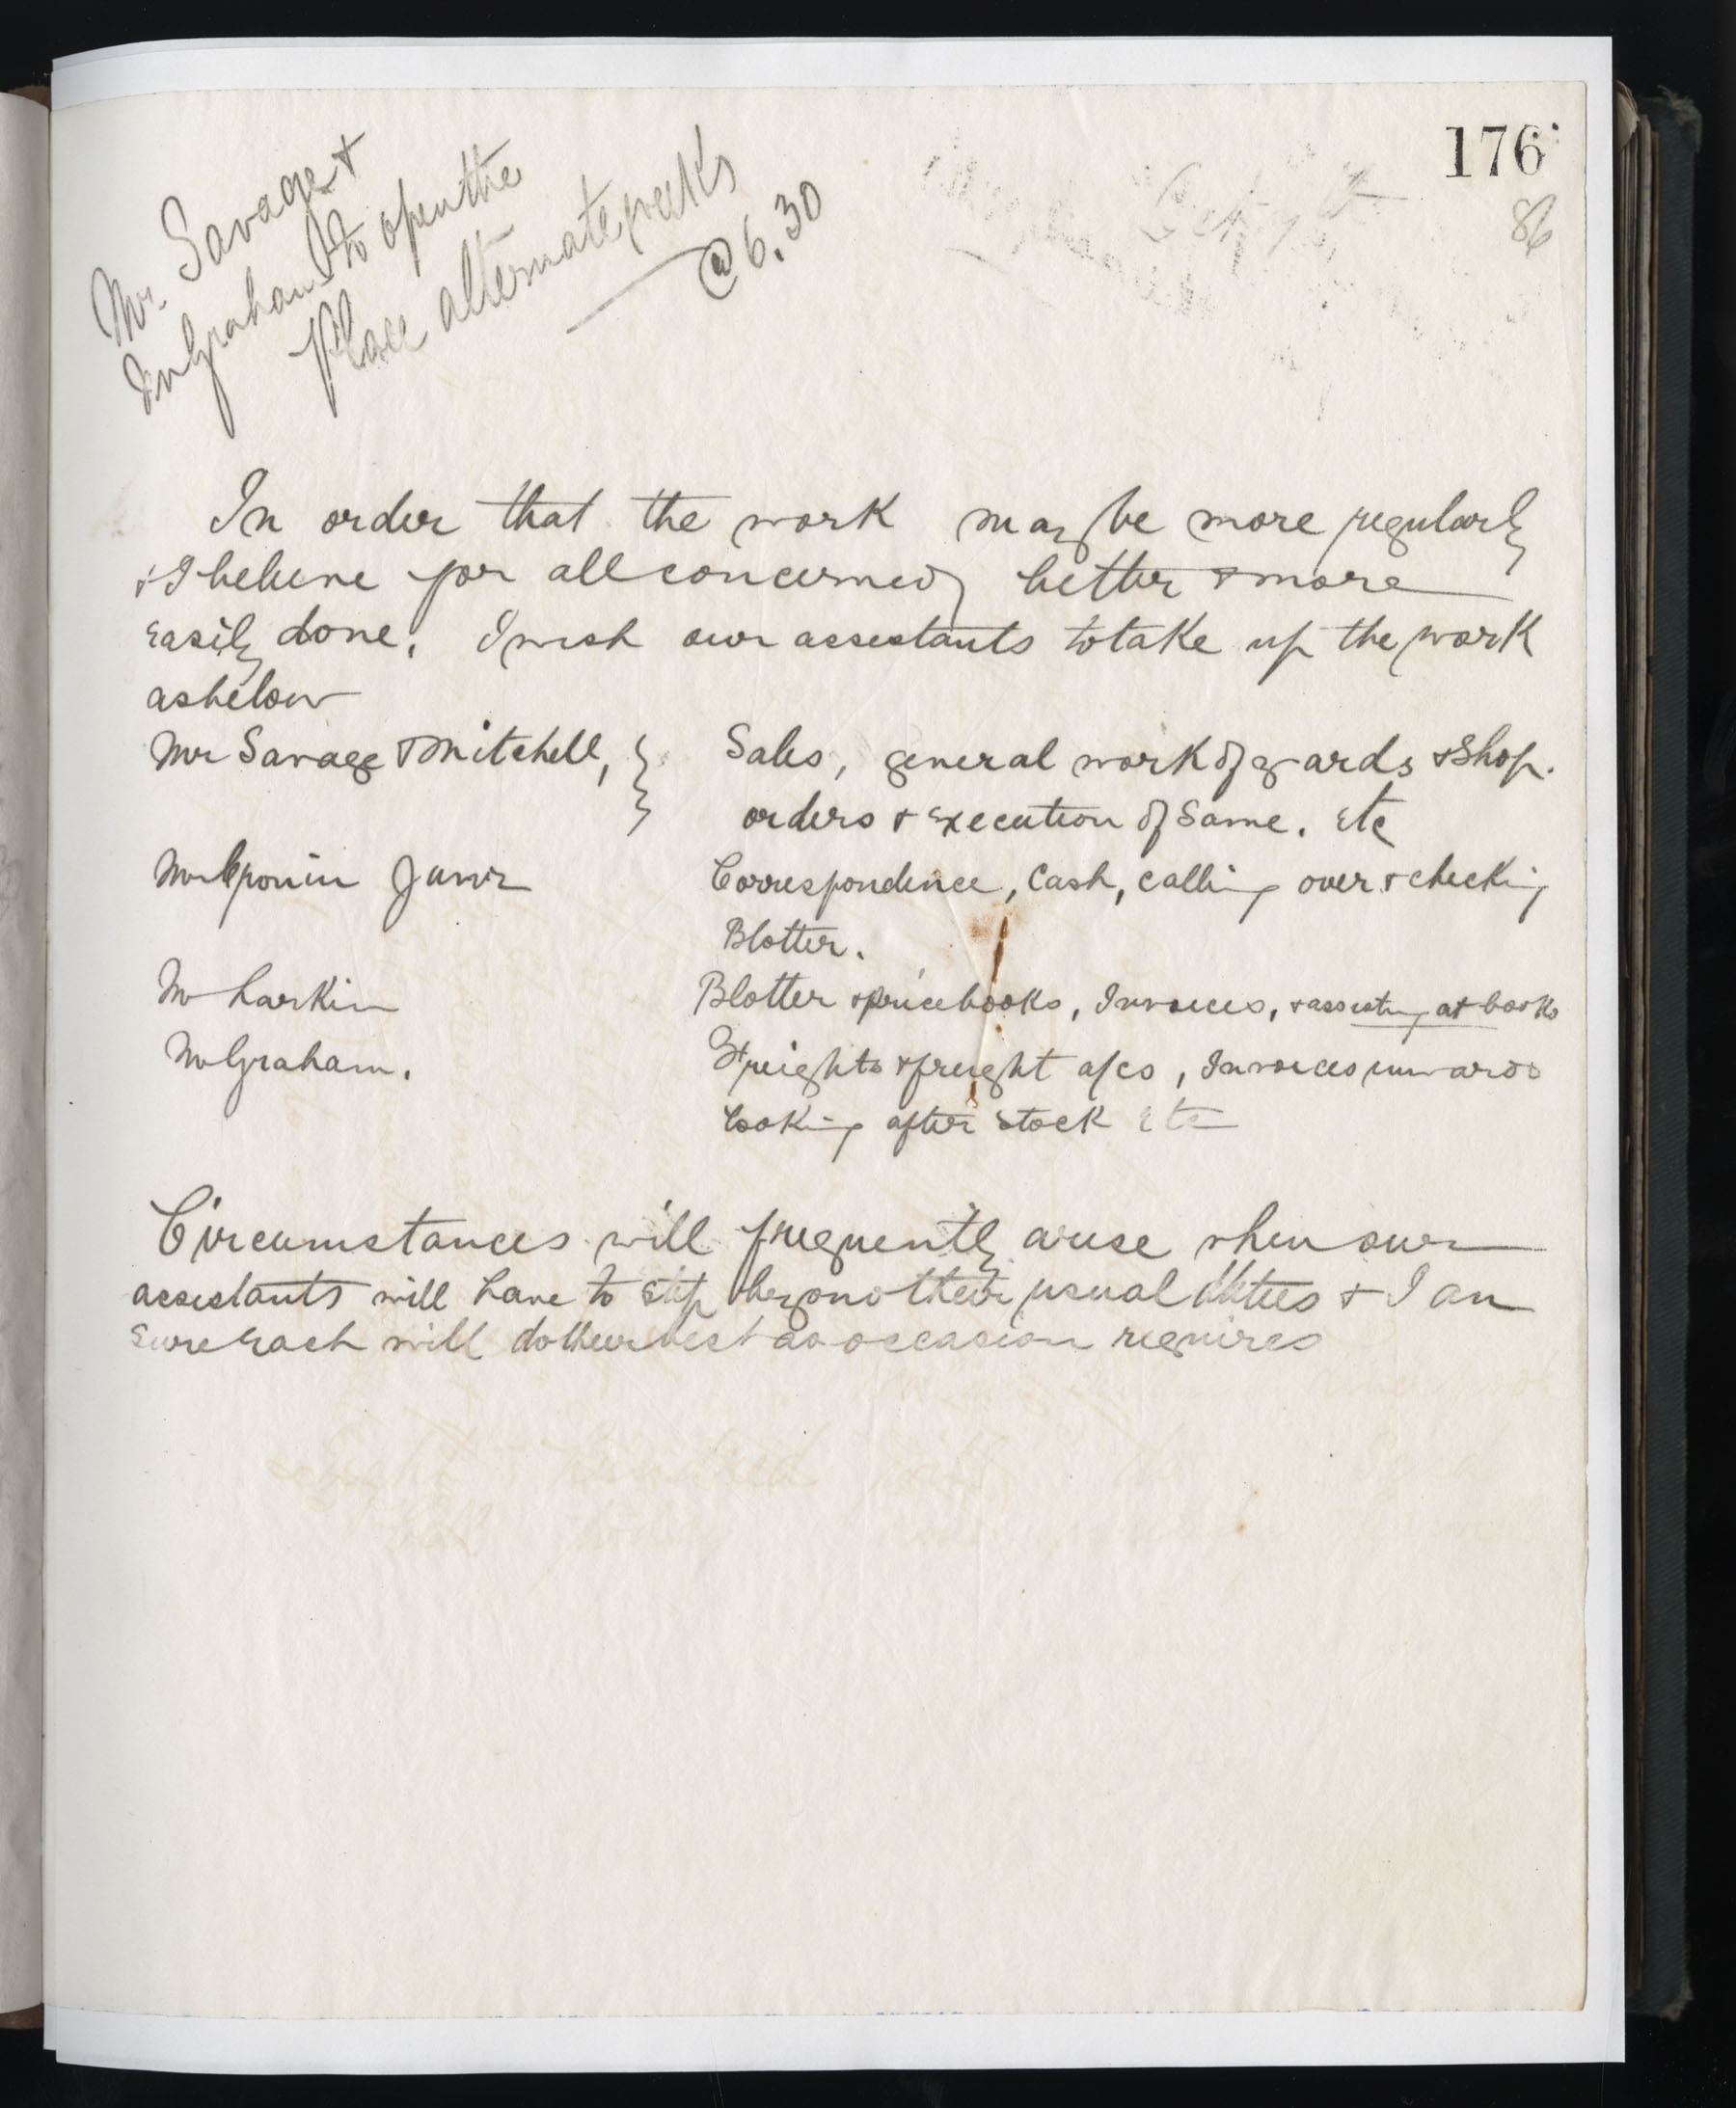 176
86
Mr. Savage &
Mr Graham to open the
Place alternate weeks
@ 6.30
In order that the work may be more regularly
& I believe for all concerned better & more
easily done. I wish our assistants to take up the work
as below
Mr Savage & Mitchell, } Sales, general work of yards & Shop.
orders & execution of Same. etc
Mr Cronin Junr Correspondence, Cash, calling over & checking
Blotter.
Mr Larkin Blotter & price books, Invoices, & assisting at books
Mr Graham. Freights & freight a/cs, Invoices inwards
Looking after stock etc
Circumstances will frequently arise when our
assistants will have to step beyond their usual duties & I am
Sure Each will do their best as occasion requires